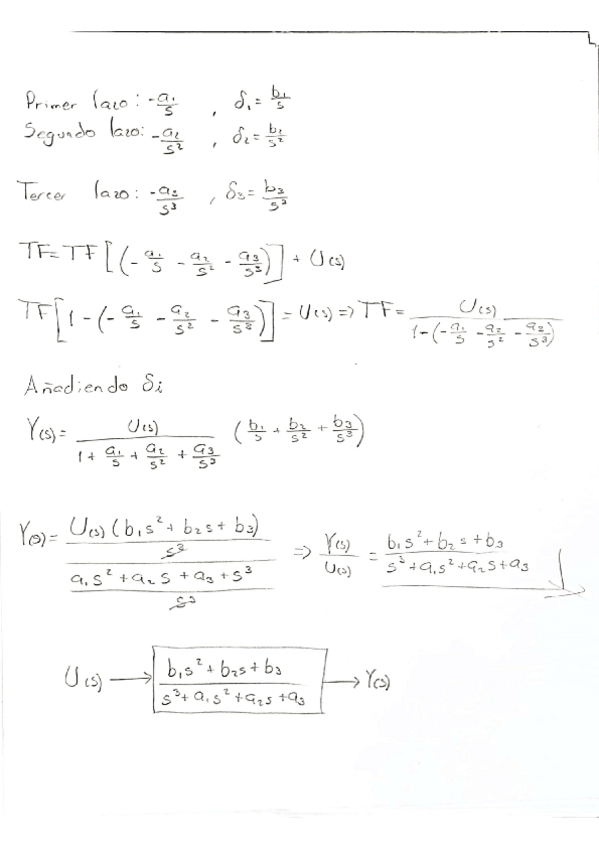 Primer lazo: -a₁/s , δ₁= b₁/s
Segundo lazo: -a₂/s² , δ₂= b₂/s²
Tercer lazo: -a₃/s³ , δ₃= b₃/s³
TF= TF[(-a₁/s - a₂/s² - a₃/s³)] + U(s)
TF[1-(-a₁/s - a₂/s² - a₃/s³)] = U(s) => TF = U(s)/(1-(-a₁/s - a₂/s² - a₃/s³))
Añadiendo δi
Y(s)= U(s)/(1 + a₁/s + a₂/s² + a₃/s³) (b₁/s + b₂/s² + b₃/s³)
Y(s)= (U(s)(b₁s² + b₂s + b₃)/s³)/((a₁s² + a₂s + a₃ + s³)/s³) => Y(s)/U(s) = (b₁s² + b₂s + b₃)/(s³ + a₁s² + a₂s + a₃)
U(s) → (b₁s² + b₂s + b₃)/(s³ + a₁s² + a₂s + a₃) → Y(s)